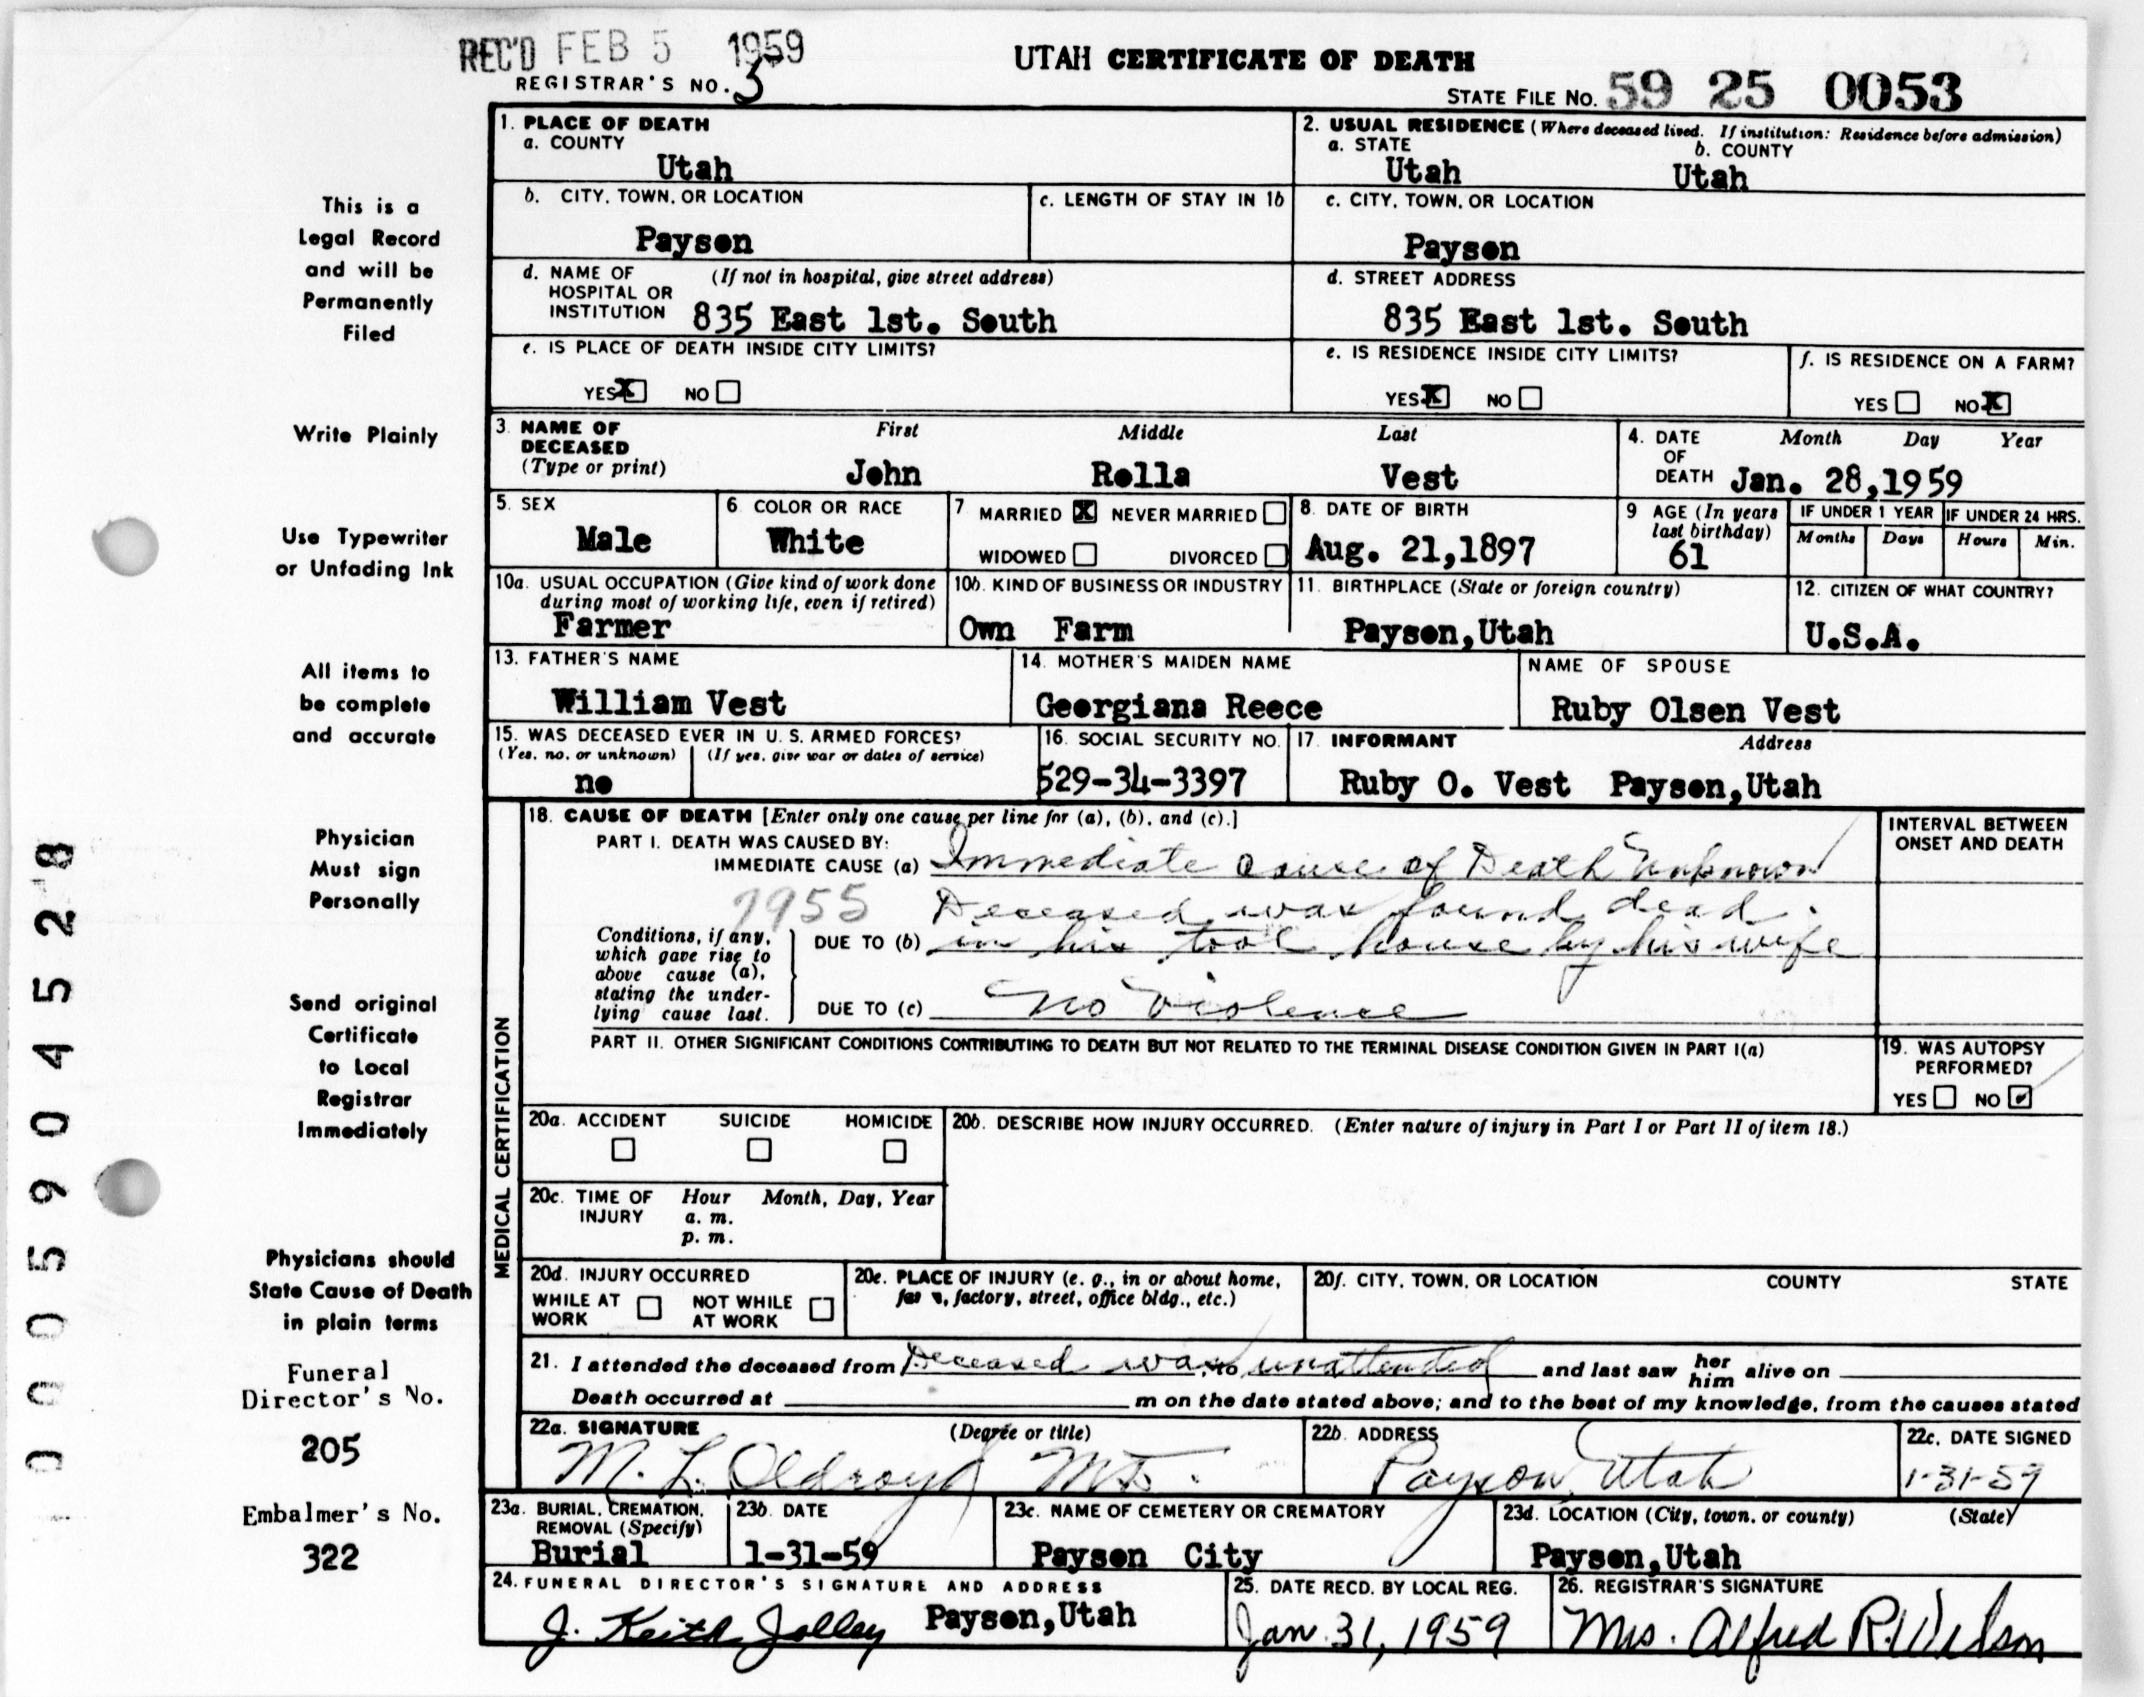 REC'D FEB 5 1959
REGISTRAR'S NO. 3
UTAH CERTIFICATE OF DEATH
STATE FILE NO. 59 25 0053
1. PLACE OF DEATH
a. COUNTY
Utah
2. USUAL RESIDENCE (Where deceased lived. If institution: Residence before admission)
a. STATE b. COUNTY
Utah Utah
b. CITY, TOWN, OR LOCATION
Payson
c. LENGTH OF STAY IN 1b
c. CITY, TOWN, OR LOCATION
Payson
d. NAME OF HOSPITAL OR INSTITUTION (If not in hospital, give street address)
835 East 1st. South
d. STREET ADDRESS
835 East 1st. South
e. IS PLACE OF DEATH INSIDE CITY LIMITS?
YES X NO
e. IS RESIDENCE INSIDE CITY LIMITS?
YES X NO
f. IS RESIDENCE ON A FARM?
YES NO X
3. NAME OF DECEASED (Type or print)
First Middle Last
John Rolla Vest
4. DATE OF DEATH Month Day Year
Jan. 28,1959
5. SEX
Male
6. COLOR OR RACE
White
7. MARRIED X NEVER MARRIED
WIDOWED DIVORCED
8. DATE OF BIRTH
Aug. 21,1897
9 AGE (In years last birthday)
61
IF UNDER 1 YEAR IF UNDER 24 HRS.
Months Days Hours Min.
10a. USUAL OCCUPATION (Give kind of work done during most of working life, even if retired)
Farmer
10b. KIND OF BUSINESS OR INDUSTRY
Own Farm
11. BIRTHPLACE (State or foreign country)
Payson,Utah
12. CITIZEN OF WHAT COUNTRY?
U.S.A.
13. FATHER'S NAME
William Vest
14. MOTHER'S MAIDEN NAME
Georgiana Reece
NAME OF SPOUSE
Ruby Olsen Vest
15. WAS DECEASED EVER IN U. S. ARMED FORCES?
(Yes, no, or unknown) (If yes, give war or dates of service)
no
16. SOCIAL SECURITY NO.
529-34-3397
17. INFORMANT Address
Ruby O. Vest Payson,Utah
MEDICAL CERTIFICATION
18. CAUSE OF DEATH [Enter only one cause per line for (a), (b), and (c).]
PART I. DEATH WAS CAUSED BY:
IMMEDIATE CAUSE (a) Immediate cause of Death Unknown
7955 Deceased was found dead
Conditions, if any, which gave rise to above cause (a), stating the underlying cause last.
DUE TO (b) in his tool house by his wife
DUE TO (c) No Violence
INTERVAL BETWEEN ONSET AND DEATH
PART II. OTHER SIGNIFICANT CONDITIONS CONTRIBUTING TO DEATH BUT NOT RELATED TO THE TERMINAL DISEASE CONDITION GIVEN IN PART I(a)
19. WAS AUTOPSY PERFORMED?
YES NO ✓
20a. ACCIDENT SUICIDE HOMICIDE
20b. DESCRIBE HOW INJURY OCCURRED. (Enter nature of injury in Part I or Part II of item 18.)
20c. TIME OF INJURY Hour Month, Day, Year
a. m.
p. m.
20d. INJURY OCCURRED
WHILE AT WORK NOT WHILE AT WORK
20e. PLACE OF INJURY (e. g., in or about home, farm, factory, street, office bldg., etc.)
20f. CITY, TOWN, OR LOCATION COUNTY STATE
21. I attended the deceased from Deceased was, to unattended and last saw her him alive on
Death occurred at m on the date stated above; and to the best of my knowledge, from the causes stated
22a. SIGNATURE (Degree or title)
M. L. Oldroyd MD.
22b. ADDRESS
Payson Utah
22c. DATE SIGNED
1-31-59
23a. BURIAL, CREMATION, REMOVAL (Specify)
Burial
23b. DATE
1-31-59
23c. NAME OF CEMETERY OR CREMATORY
Payson City
23d. LOCATION (City, town, or county) (State)
Payson,Utah
24. FUNERAL DIRECTOR'S SIGNATURE AND ADDRESS
J. Keith Jolley Payson,Utah
25. DATE RECD. BY LOCAL REG.
Jan 31, 1959
26. REGISTRAR'S SIGNATURE
Mrs. Alfred R. Wilson
This is a
Legal Record
and will be
Permanently
Filed
Write Plainly
Use Typewriter
or Unfading Ink
All items to
be complete
and accurate
Physician
Must sign
Personally
Send original
Certificate
to Local
Registrar
Immediately
Physicians should
State Cause of Death
in plain terms
Funeral
Director's No.
205
Embalmer's No.
322
0005904528